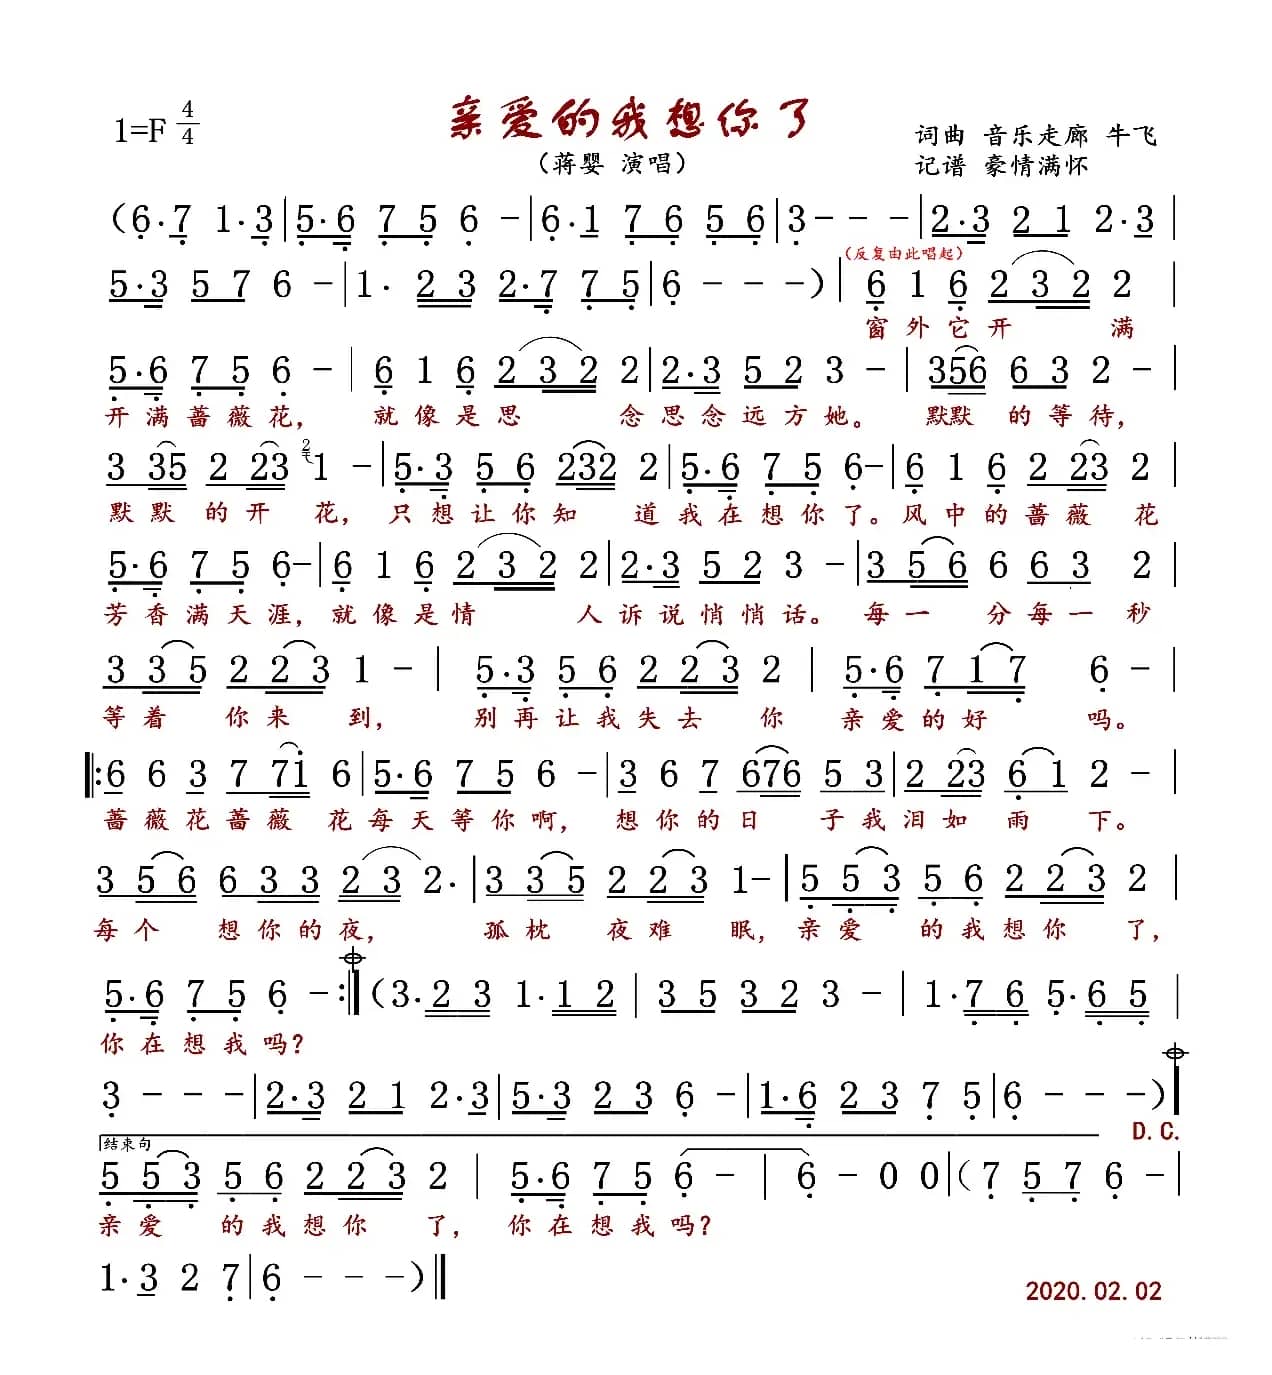 亲爱的我想你了
1=F 4/4
（蒋婴 演唱）
词曲 音乐走廊 牛飞
记谱 豪情满怀
（6·7 1·3|5·6 7 5 6 -|6·1 7 6 5 6|3 - - -|2·3 2 1 2·3|
（反复由此唱起）
5·3 5 7 6 -|1· 2 3 2·7 7 5|6 - - -）|6 1 6 2 3 2 2|
窗外它开 满
5·6 7 5 6 -|6 1 6 2 3 2 2|2·3 5 2 3 -|3 5 6 6 3 2 -|
开满蔷薇花，就像是思 念思念远方她。 默默 的等待，
3 3 5 2 2 3 2 1 -|5·3 5 6 2 3 2 2|5·6 7 5 6 -|6 1 6 2 2 3 2|
默默 的开 花，只想让你知 道我在想你了。风中的蔷薇 花
5·6 7 5 6 -|6 1 6 2 3 2 2|2·3 5 2 3 -|3 5 6 6 6 3 2|
芳香满天涯，就像是情 人诉说悄悄话。每一 分每一秒
3 3 5 2 2 3 1 -|5·3 5 6 2 2 3 2|5·6 7 1 7 6 -|
等着 你来 到， 别再让我失去 你 亲爱的好 吗。
|:6 6 3 7 7 1 6|5·6 7 5 6 -|3 6 7 6 7 6 5 3|2 2 3 6 1 2 -|
蔷薇花蔷薇 花每天等你啊， 想你的日 子我泪如雨 下。
3 5 6 6 3 3 2 3 2·|3 3 5 2 2 3 1 -|5 5 3 5 6 2 2 3 2|
每个 想你的夜， 孤枕 夜难 眠，亲爱 的我想你 了，
5·6 7 5 6 -:|（3·2 3 1·1 2|3 5 3 2 3 -|1·7 6 5·6 5|
你在想我吗？
3 - - -|2·3 2 1 2·3|5·3 2 3 6 -|1·6 2 3 7 5|6 - - -）|
D.C.
结束句
5 5 3 5 6 2 2 3 2|5·6 7 5 6 -|6 - 0 0|（7 5 7 6 -|
亲爱 的我想你 了， 你在想我吗？
1·3 2 7|6 - - -）|
2020.02.02